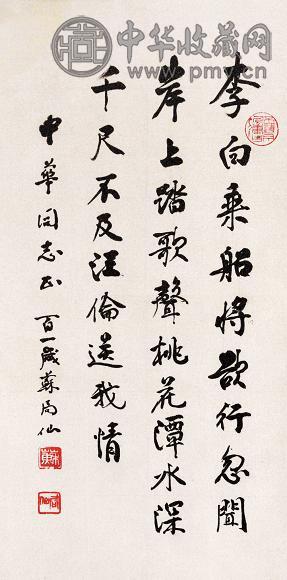 中华收藏网
www.pmyc.cn
李白乘船将欲行忽聞
岸上踏歌聲桃花潭水深
千尺不及汪倫送我情
中華同志正 百一歲蘇局仙